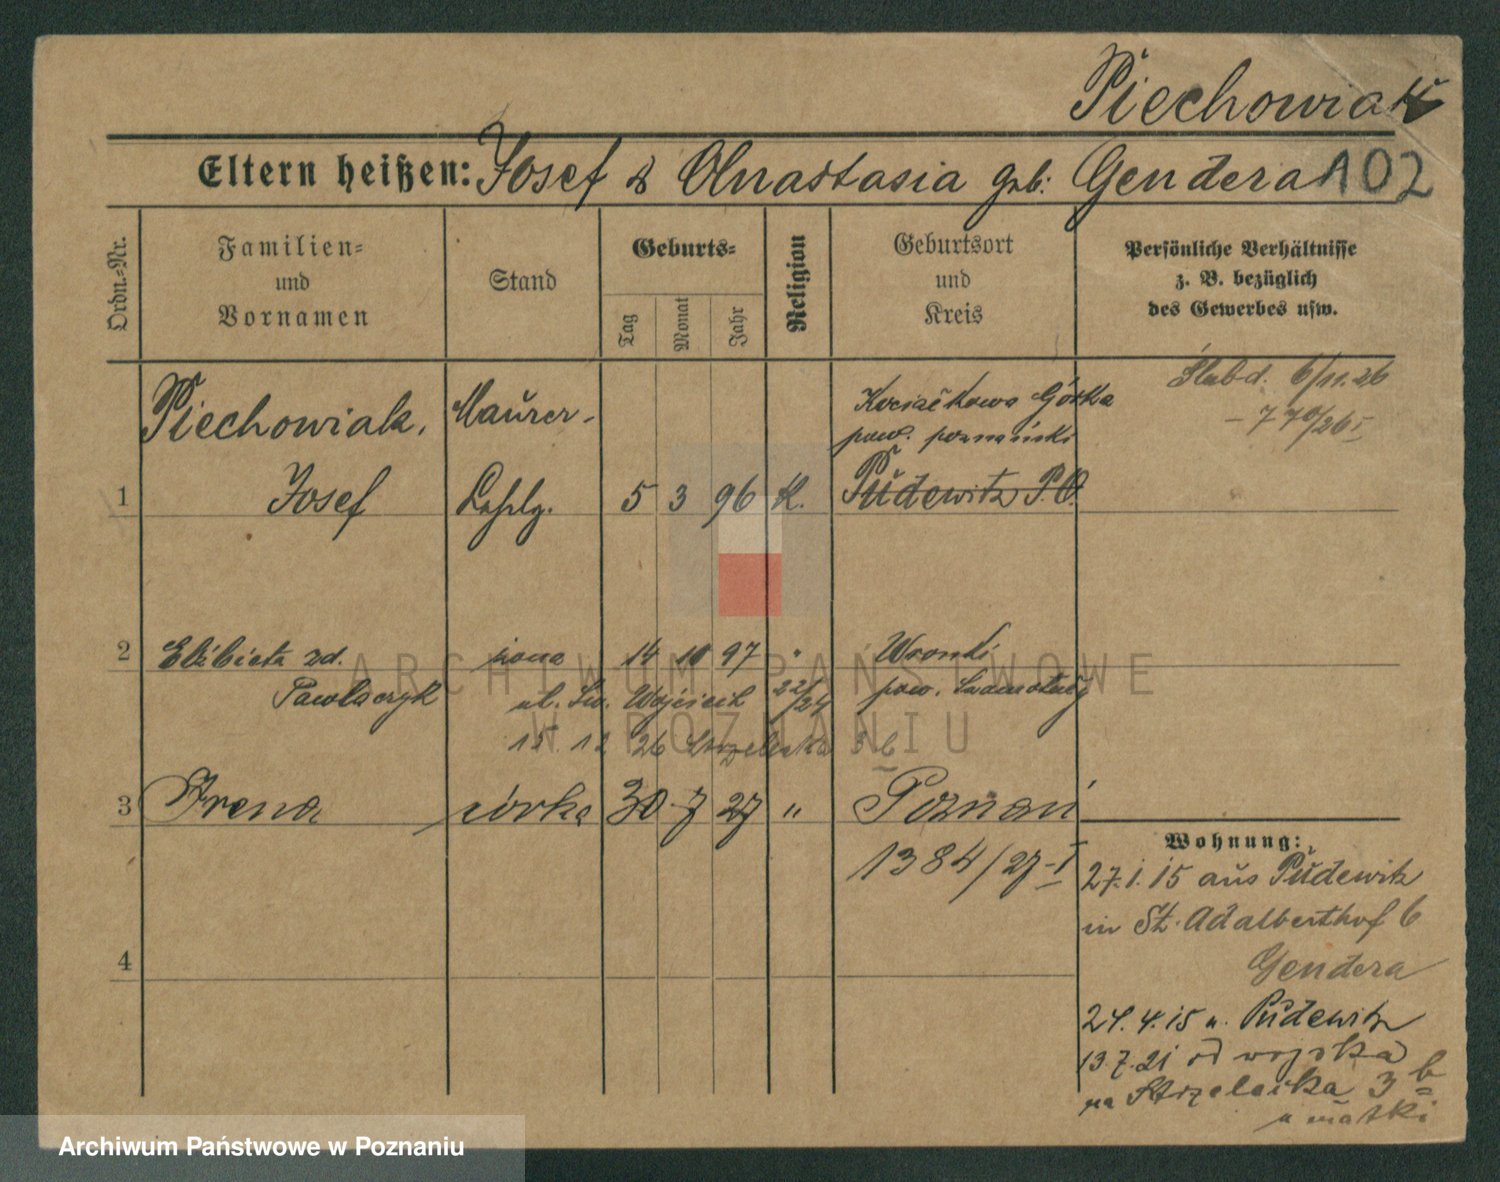 Piechowiak
Eltern heißen: Josef & Anastasia geb: Gendera 102
Ordn.-Nr.
Familien-
und
Vornamen
Stand
Geburts-
Tag
Monat
Jahr
Religion
Geburtsort
und
Kreis
Persönliche Verhältnisse
z. B. bezüglich
des Gewerbes usw.
Piechowiak,
Maurer-
pow. poznański
6/11.26
1 Josef 5 3 96 K. Pudewitz P.O.
2 Elżbieta zd. żona 14 10 97 " Wronki
Pawlaczyk ul. Św. Wojciech 22/24 pow. Szamotuły
15 12 26 Strzelecka 3 b
3 Irena córka 30 7 27 " Poznań
1384/27-I
4
Wohnung:
27.1.15 aus Pudewitz
in St. Adalberthof 6
Gendera
24.4.15 n. Pudewitz
13.7.21 od wojska
na Strzelecka 3 b
u matki
ARCHIWUM PAŃSTWOWE
W POZNANIU
Archiwum Państwowe w Poznaniu